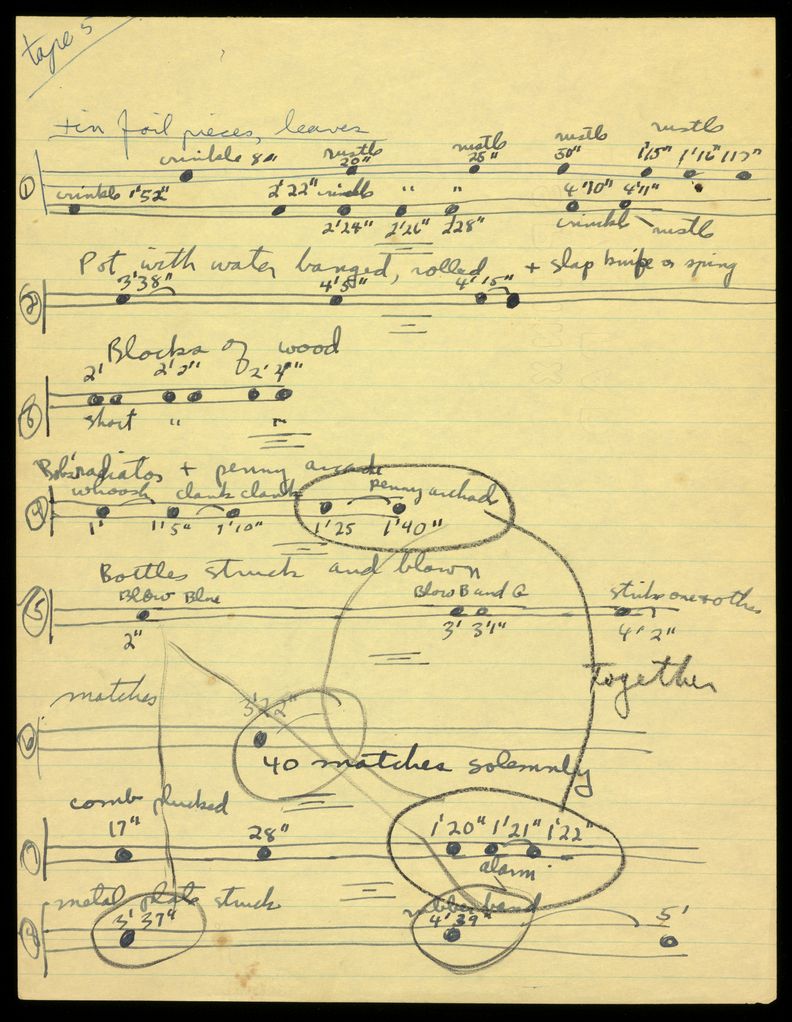 tape 5
tin foil pieces, leaves
crinkle 8" rustle 20" rustle 25" rustle 50" rustle 1'15" 1'16" 117"
1
crinkle 1'52" 2'22" crinkle " " 4'10" 4'11"
2'24" 2'26" 2'28" crinkle rustle
Pot with water banged, rolled + slap knife or spring
3'38" 4'5" 4'15"
2
Blocks of wood
2' 2'2" 2'4"
3
short " "
Bob's radiator + penny arcade
whoosh clank clank penny archade
4
1' 1'5" 1'10" 1'25 1'40"
Bottles struck and blown
Blow Blue Blow B and G strike one + other
5
2" 3' 3'1" 4'2"
Together
matches
3'22"
6
40 matches solemnly
comb plucked
17" 28" 1'20" 1'21" 1'22"
7
alarm
metal plate struck rubber band
3'37" 4'39" 5'
8